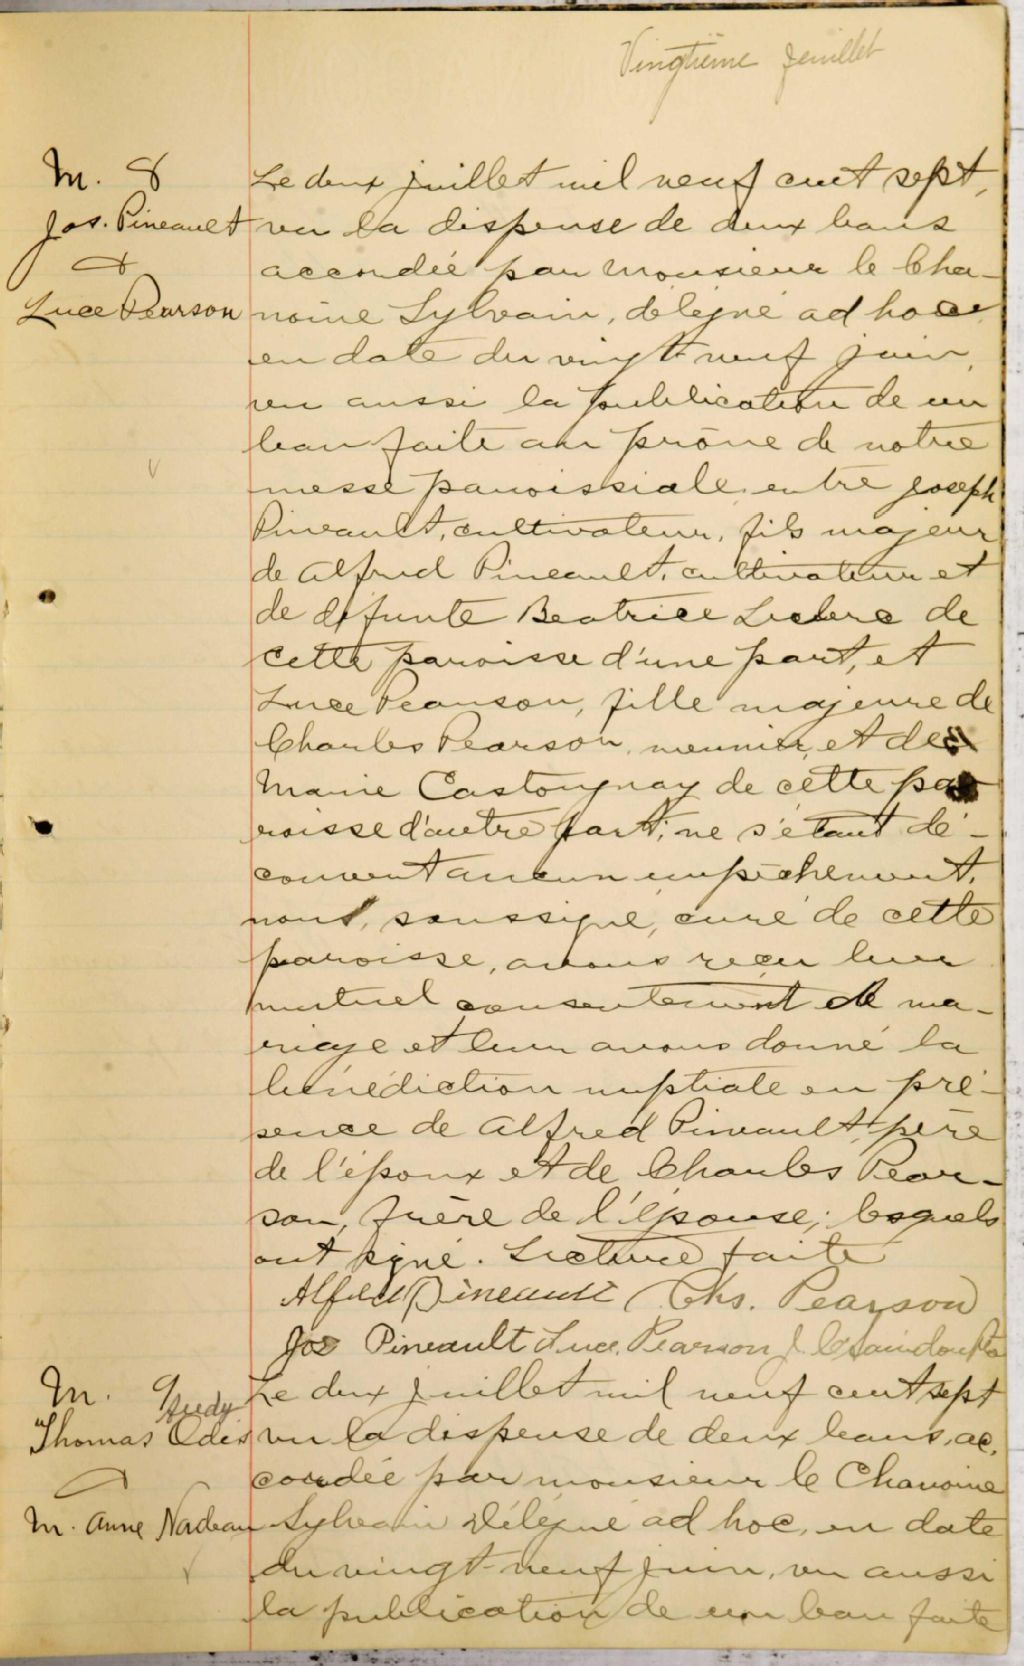 Vingtième feuillet
M. 8
Jos. Pineault
&
Luce Pearson
Le deux juillet mil neuf cent sept,
vu la dispense de deux bans
accordée par Monsieur le Cha-
noine Sylvain, délégué ad hoc
en date du vingt-neuf juin,
vu aussi la publication de un
ban faite au prône de notre
messe paroissiale entre Joseph
Pineault, cultivateur, fils majeur
de Alfred Pineault, cultivateur et
de défunte Beatrice Leclerc de
cette paroisse d'une part, et
Luce Pearson, fille majeure de
Charles Pearson, meunier, et de
Marie Castonguay de cette pa
roisse d'autre part; ne s'étant dé-
couvert aucun empêchement,
nous, soussigné, curé de cette
paroisse, avons reçu leur
mutuel consentement de ma-
riage et leur avons donné la
bénédiction nuptiale en pré-
sence de Alfred Pineault, père
de l'époux et de Charles Pear-
son, frère de l'épouse; lesquels
ont signé. Lecture faite
Alfred Pineault Chs. Pearson
Jos Pineault Luce Pearson J.
M. 9
Thomas
&
M. Anne Nadeau
Le deux juillet mil neuf cent sept
vu la dispense de deux bans, ac-
cordée par monsieur le Chanoine
Sylvain délégué ad hoc, en date
du vingt-neuf juin, vu aussi
la publication de un ban faite